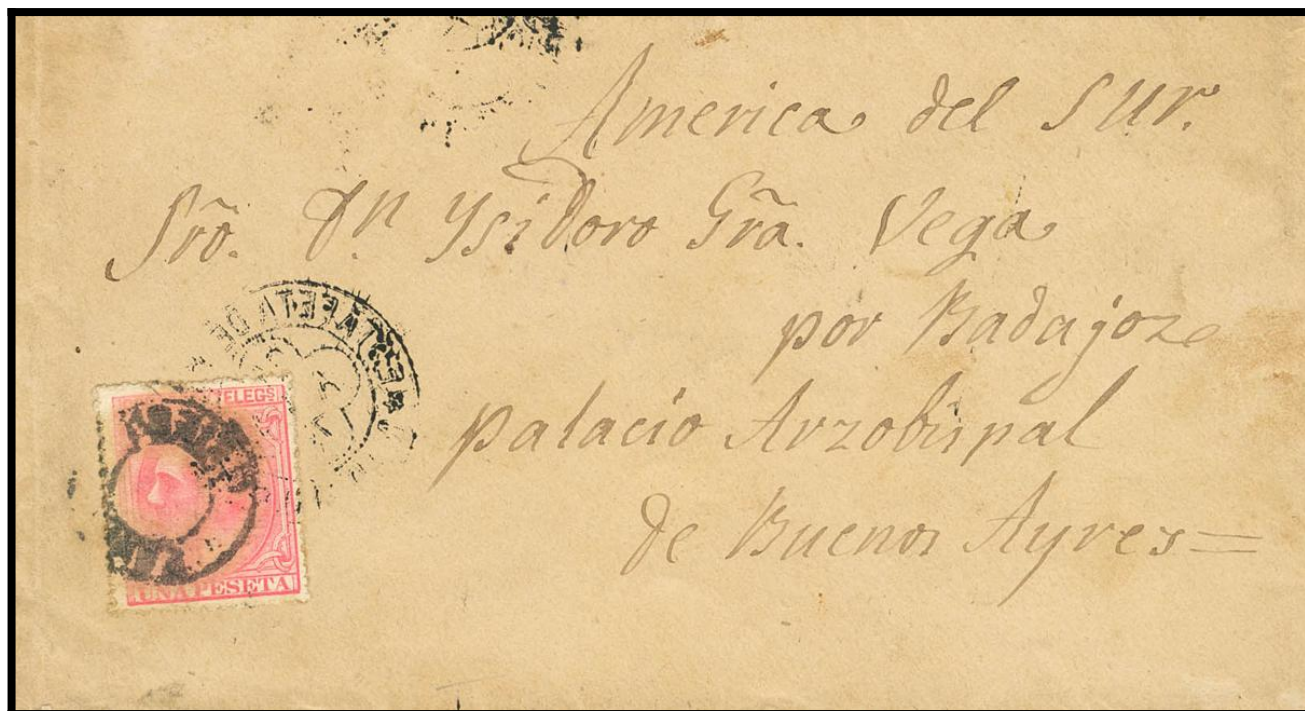 America del Sur.
Sr̃o. Dn Ysidoro Gr̃a. Vega
por Badajoz
palacio Arzobispal
de Buenos Ayres=
ELEGS
UNA PESETA